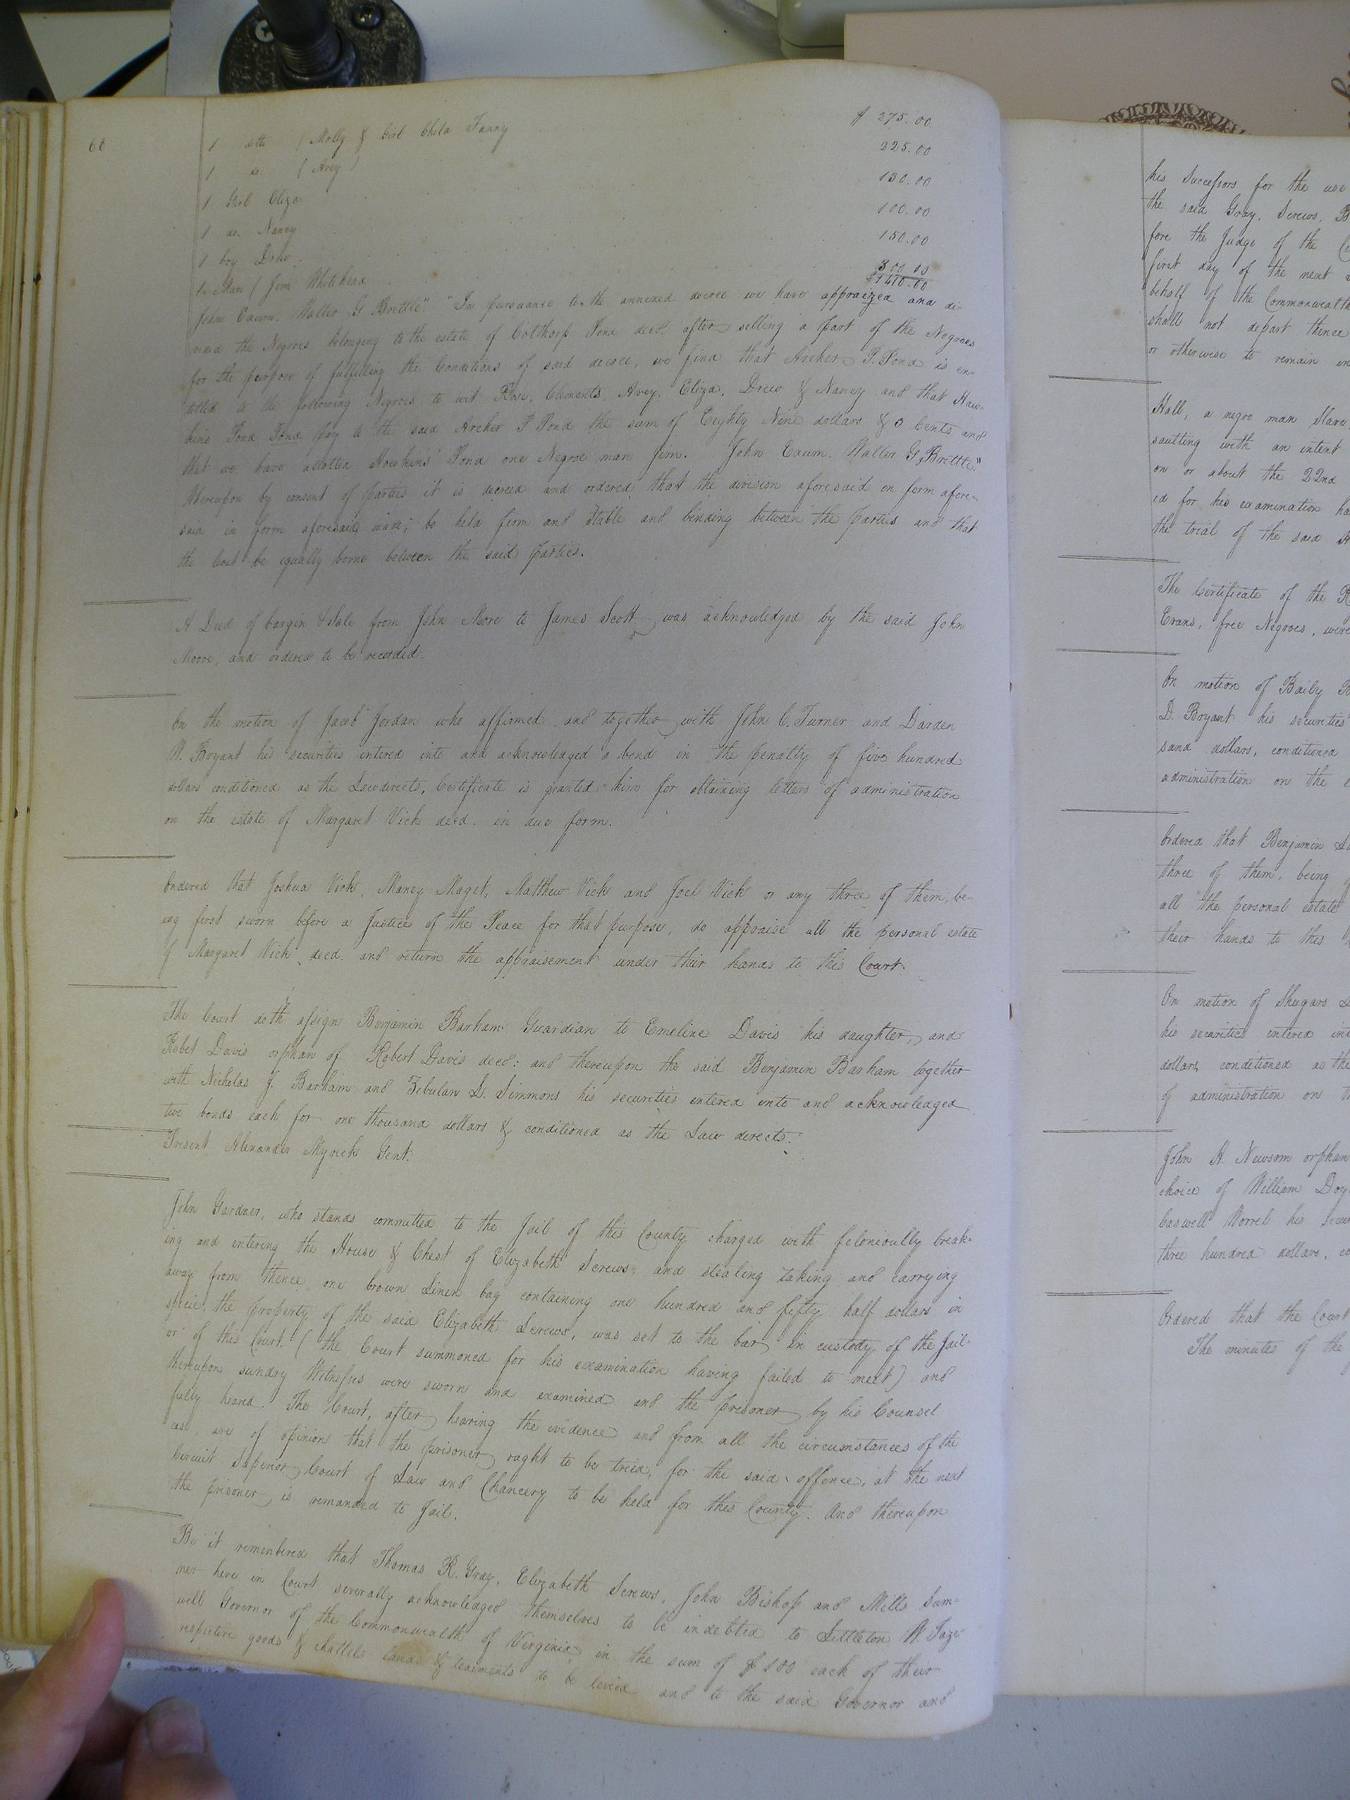 68
1 ditto (Molly & Girl Child Fanny $ 275.00
1 do. (Avey) 225.00
1 Girl Eliza 130.00
1 do. Nancy 100.00
1 boy Drew 150.00
1 Man (Jim Whitehead 300.00
$1410.00
John Eacum. Walter G Brettle" "In pursuance to the annexed decree we have appraized and di-
vided the Negroes belonging to the estate of Colthorp Pond decd. after selling a part of the Negroes
for the purpose of fulfilling the Conditions of said decree, we find that Archer P. Pond is en-
titled to the following Negroes to wit Rose, Clements, Avey, Eliza, Drew & Nancy and that Haw-
kins Pond Pond pay to the said Archer P Pond the sum of Eighty Nine dollars & 0 Cents and
that we have allotted Hawkins Pond one Negroe man Jim. John Eacum. Walter G. Brettle"
thereupon by consent of parties it is decreed and ordered that the division aforesaid en form afore-
said in form aforesaid made; be held firm and stable and binding between the parties and that
the Cost be equally borne between the said parties.
A Deed of bargin & Sale from John More to James Scott was acknowledged by the said John
Moore, and ordered to be recorded.
On the motion of Jacob Jordan who affirmed and together with John C. Turner and Darden
W. Bryant his securities entered into and acknowledged a bond in the penalty of five hundred
dollars conditioned as the Law directs, Certificate is granted him for obtaining letters of administration
on the estate of Margaret Vick decd. in due form.
Ordered that Joshua Vick, Maney Maget, Matthew Vick and Joel Vick or any three of them, be-
ing first sworn before a Justice of the Peace for that purpose, do appraise all the personal estate
of Margaret Vick decd. and return the appraisement under their hands to this Court.
The Court doth assign Benjamin Barham Guardian to Emeline Davis his daughter, and
Robet Davis orphan of Robert Davis decd: and thereupon the said Benjamin Barham together
with Nicholas J. Barham and Zebulan D. Simmons his securities entered into and acknowledged
two bonds each for one thousand dollars & conditioned as the Law directs.
Present Alexander Myrick Gent.
John Gardner, who stands committed to the Jail of this County charged with feloniously break-
ing and entering the House & Chest of Elizabeth Screws, and stealing taking and carrying
away from thence one brown Linen bag containing one hundred and fifty half dollars in
specie, the property of the said Elizabeth Screws, was set to the bar in custody of the Jail-
or of this Court. (the Court summoned for his examination having failed to meet) and
thereupon sundry Witnesses were sworn and examined and the prisoner by his Counsel
fully heard. The Court, after hearing the evidence and from all the circumstances of the
case, are of opinion that the prisoner ought to be tried, for the said offence, at the next
Circuit Superior Court of Law and Chancery to be held for this County. And thereupon
the prisoner is remanded to Jail.
Be it remembered that Thomas R. Gray, Elizabeth Screws, John Bishop and Mills Sum-
ner here in Court severally acknowledged themselves to be indebted to Littleton W. Taze-
well Governor of the Commonwealth of Virginia in the sum of $ 100 each of their
respective goods & chattels lands & tenements to be levied and to the said Governor and
his Successors for the use
the said Gray, Screws, B
fore the Judge of the C
first day of the next
behalf of the Commonwealth
shall not depart thence
or otherwise to remain in
Hall, a negro man Slave
saulting with an intent
on or about the 22nd
ed for his examination ha
the trial of the said
The Certificate of the R
Evans, free Negroes, were
On motion of Baily
D. Bryant his securities
sand dollars, conditioned
administration on the e
Ordered that Benjamin
three of them, being
all the personal estate
their hands to this
On motion of Shugars
his securities entered in
dollars, conditioned as the
of administration on t
John H. Newsom orphan
choice of William Doy
Caswell Worrel his secur
three hundred dollars, co
Ordered that the Court
The minutes of the